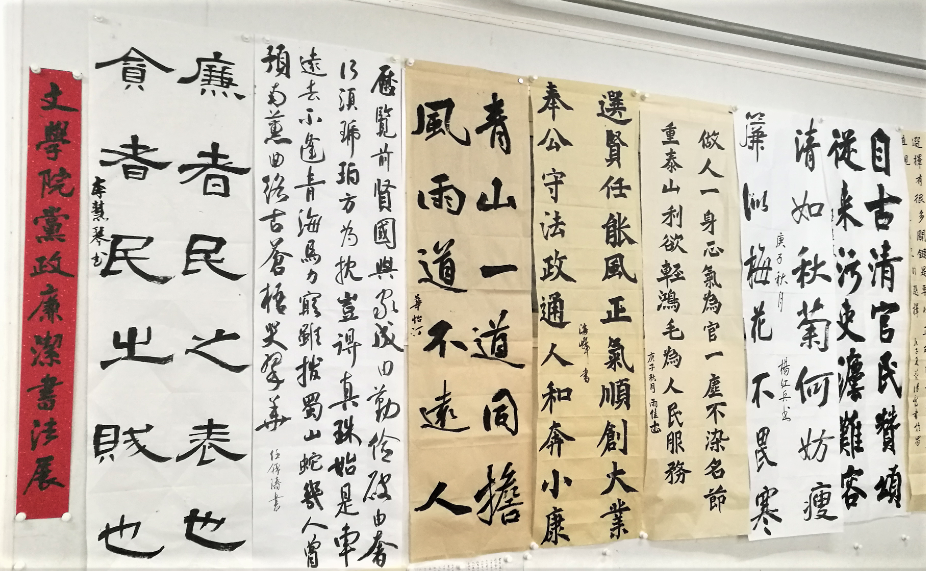 文學院黨政廉潔書法展
廉者民之表也
貪者民之賊也
李慧琴书
歷覽前賢國與家成由勤儉破由奢
何須琥珀方為枕豈得真珠始是車
遠去不逢青海馬力窮難拔蜀山蛇幾人曾
預南薰曲終古蒼梧哭翠華
青山一道同擔
風雨道不遠人
選賢任能風正氣順創大業
奉公守法政通人和奔小康
海峰書
做人一身正氣為官一塵不染名節
重泰山利欲輕鴻毛為人民服務
庚子秋月雨佳书
清如秋菊何妨瘦
廉似梅花不畏寒
庚子秋月
楊江兵書
自古清官民贊頌
從来污吏灋難容
選擇有很多關鍵是